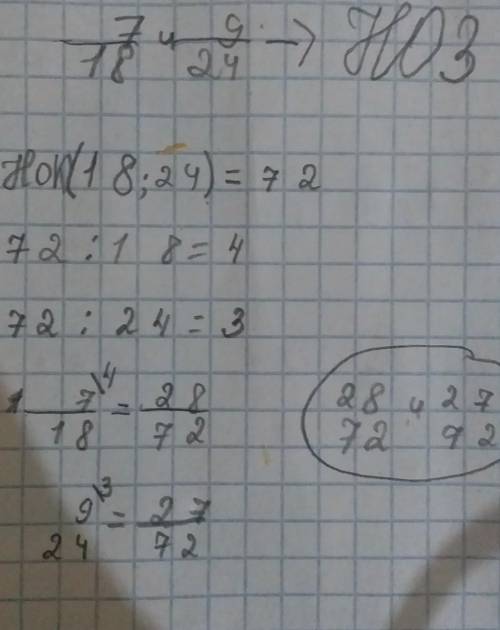 7/18 и 9/24 → НОЗ
НОК(18;24) = 72
72 : 18 = 4
72 : 24 = 3
7\4/18 = 28/72
28/72 и 27/72
9\3/24 = 27/72